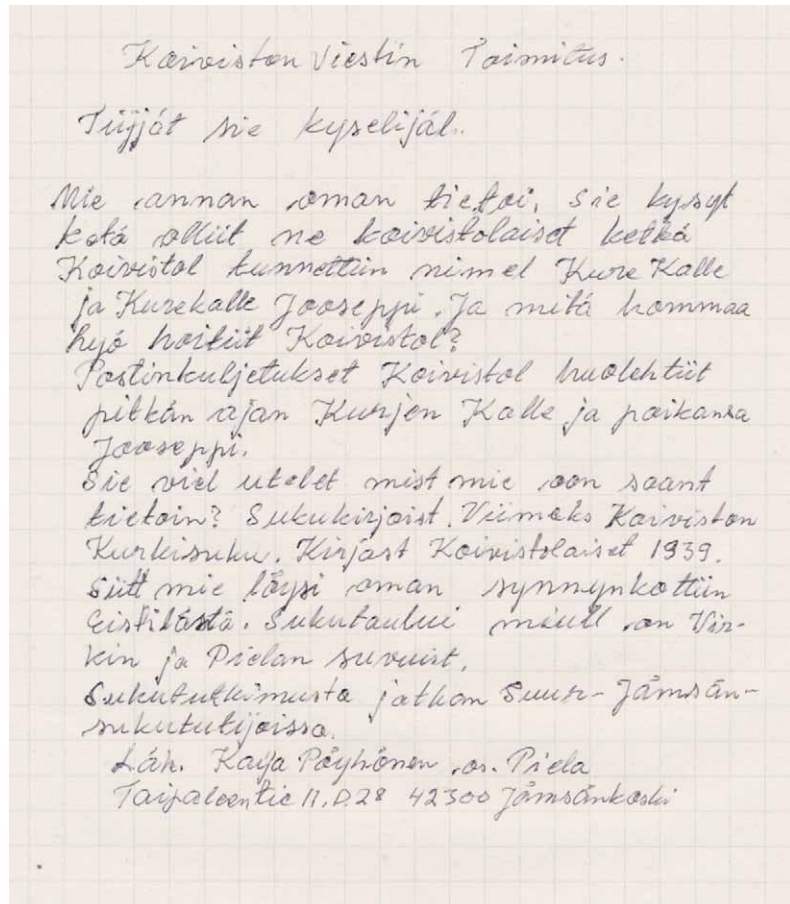 Koiviston Viestin Toimitus.
Tiijjät sie kyselijäl.
Mie annan oman tietoi, sie kysyt
ketä olliit ne koivistolaiset ketkä
Koivistol tunnettiin nimel Kure Kalle
ja Kurekalle Jooseppi. Ja mitä hommaa
hyö hoitiit Koivistol?
Postinkuljetukset Koivistol huolehtiit
pitkän ajan Kurjen Kalle ja poikansa
Jooseppi.
Sie viel utelet mist mie oon saant
tietoin? Sukukirjoist. Viimeks Koiviston
Kurkisuku. Kirjast Koivistolaiset 1939.
Siitt mie löysi oman synnynkottiin
Eistilästä. Sukutaului miull on Vir-
kin ja Pielan suvuist.
Sukututkimusta jatkan Suur-Jämsän-
sukututijoissa.
Läh. Kaija Pöyhönen os. Piela
Taipaleentie 11.D.28 42300 Jämsänkoski